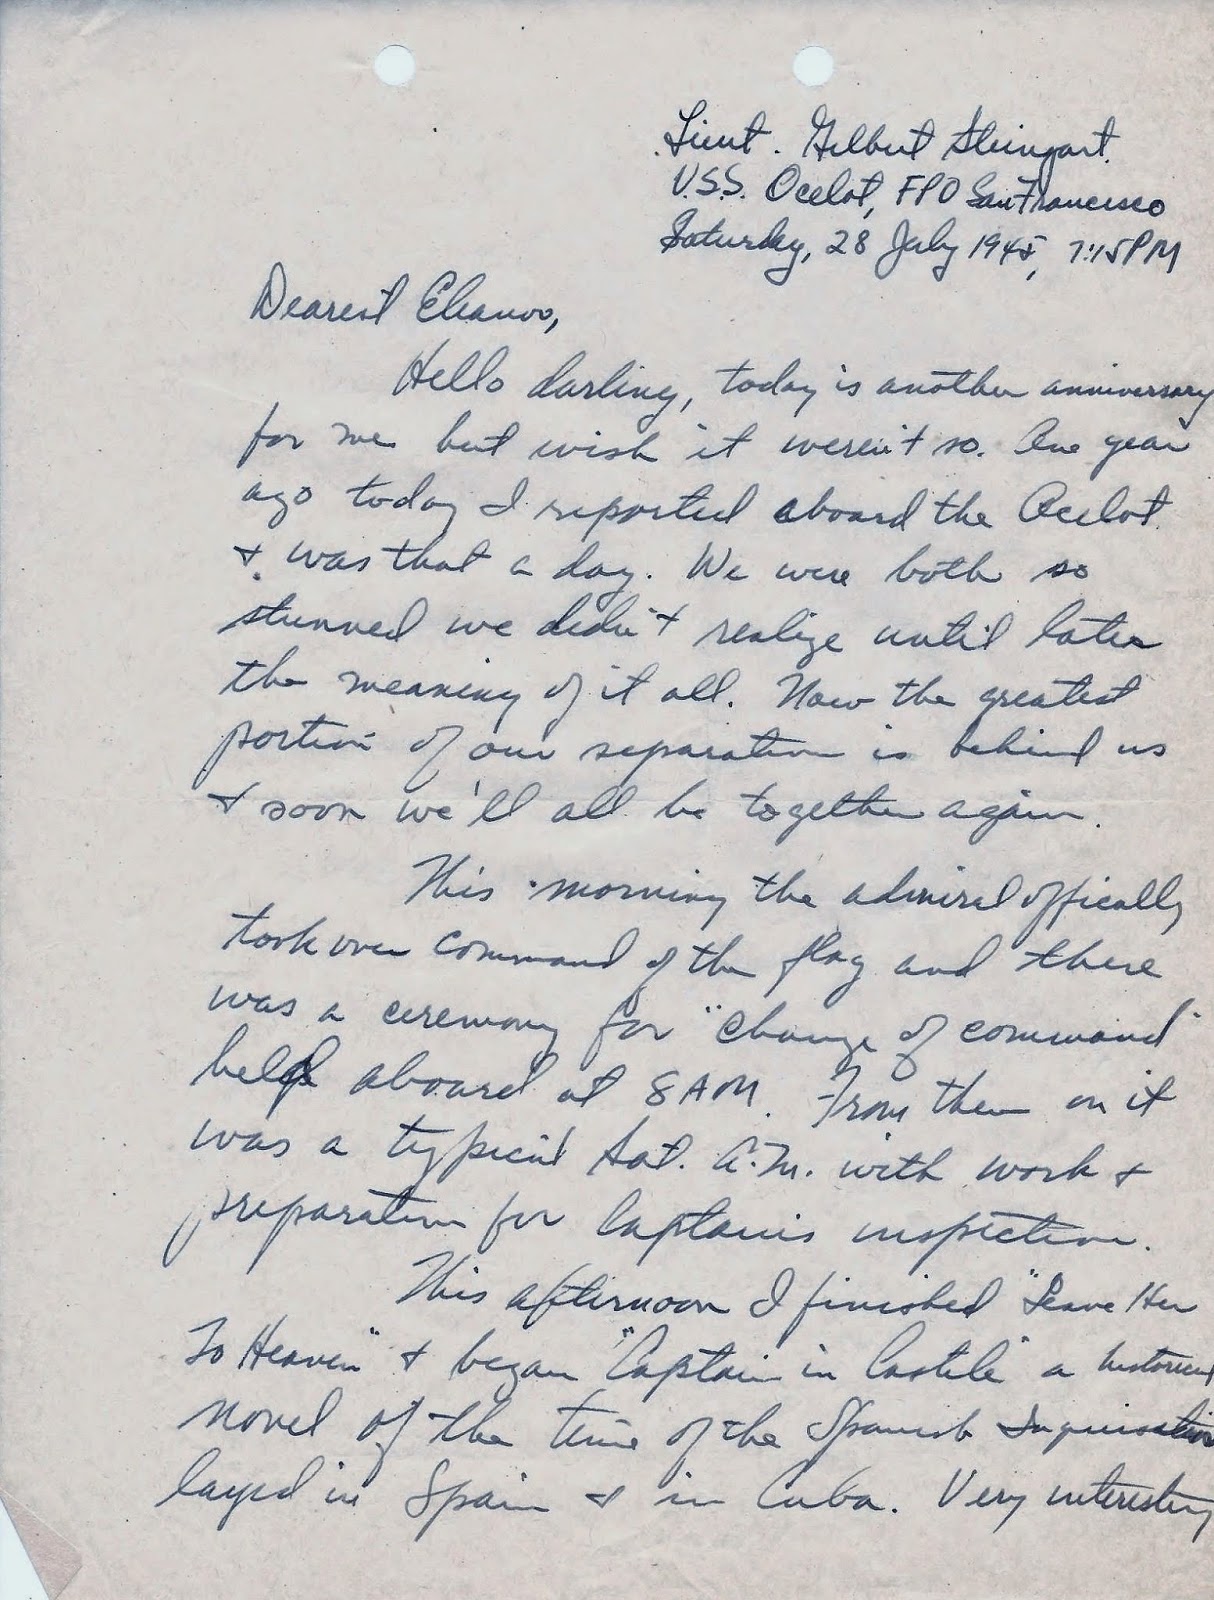 Lieut. Gilbert Steingart.
U.S.S. Ocelot, FPO San Francisco
Saturday, 28 July 1945, 7:15PM
Dearest Eleanor,
Hello darling, today is another anniversary
for me but wish it weren't so. One year
ago today I reported aboard the Ocelot
& was that a day. We were both so
stunned we didn't realize until later
the meaning of it all. Now the greatest
portion of our separation is behind us
& soon we'll all be together again.
This morning the admiral offically
took over command of the flag and there
was a ceremony for "change of command"
held aboard at 8 AM. From then on it
was a typical Sat. A.M. with work &
preparation for Captain's inspection.
This afternoon I finished "Leave Her
To Heaven" & began "Captain in Castile" a historical
novel of the time of the Spanish Inquisition
layed in Spain & in Cuba. Very interesting